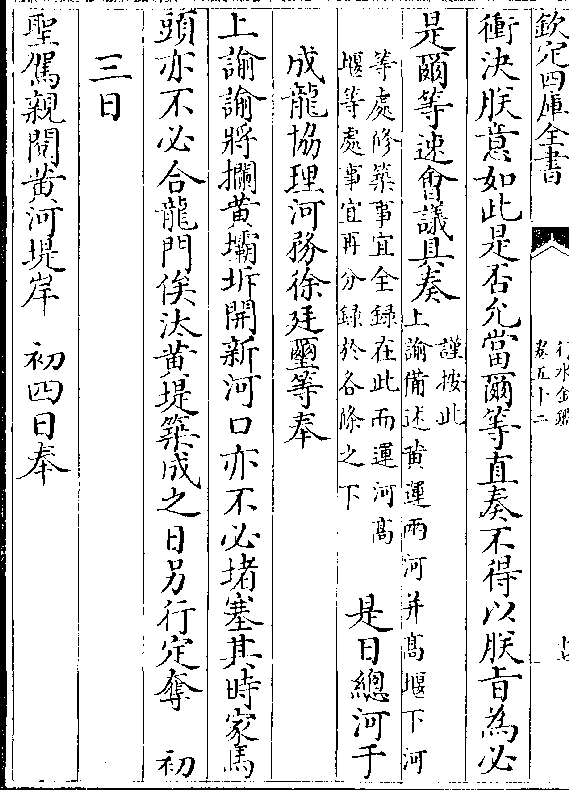 欽定四庫全書
行水金鑑
卷五十二
衝決朕意如此是否允當爾等直奏不得以朕旨為必
是爾等速會議具奏
謹按此
上諭備述黄運兩河并高堰下河
等處修築事宜全録在此而運河高
堰等處事宜再分録於各條之下
是日總河于
成龍協理河務徐廷璽等奉
上諭諭將攔黄壩坼開新河口亦不必堵塞其時家馬
頭亦不必合龍門俟汰黄堤築成之日另行定奪 初
三日
聖駕親閲黄河堤岸 初四日奉